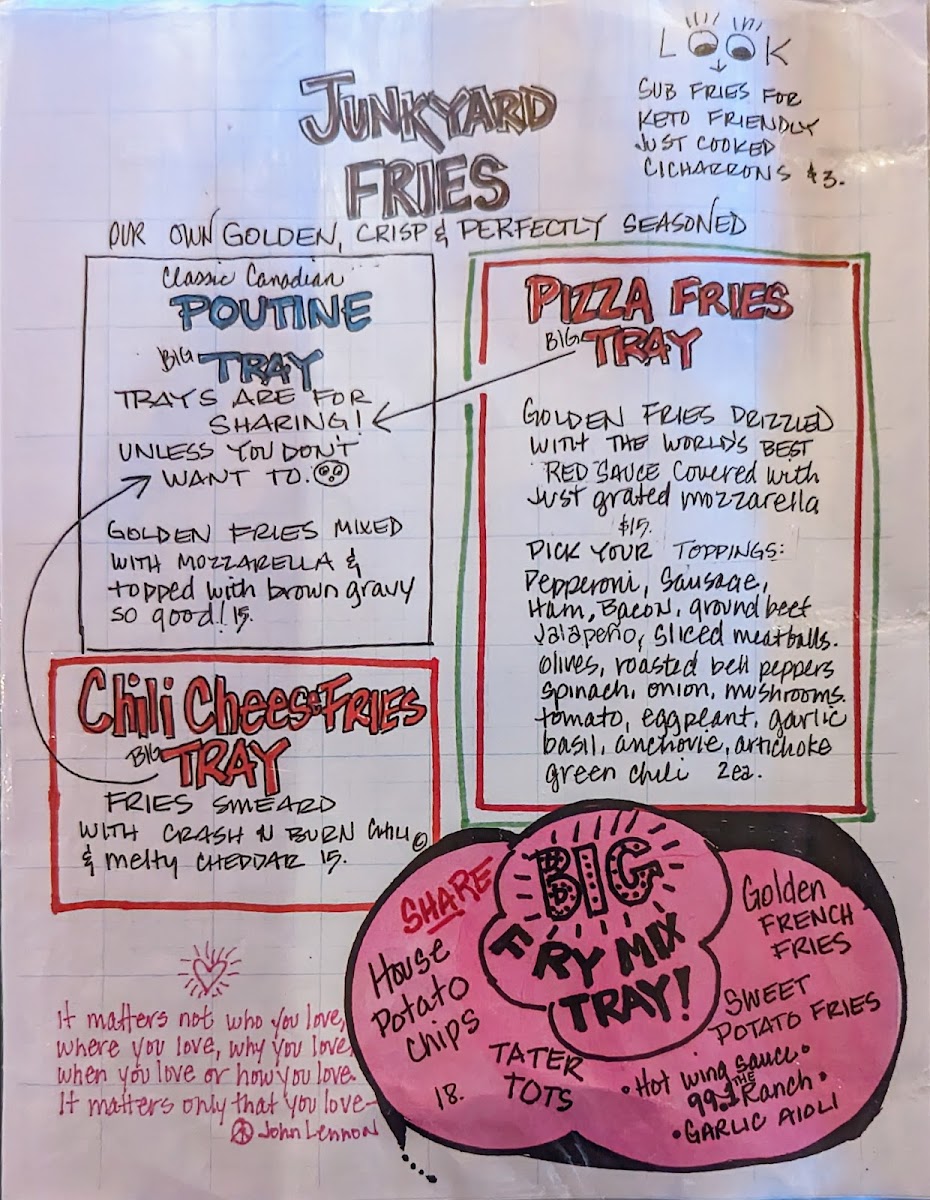 LOOK
SUB FRIES FOR
KETO FRIENDLY
JUST COOKED
CICHARRONS $3.
JUNKYARD
FRIES
OUR OWN GOLDEN, CRISP & PERFECTLY SEASONED
Classic Canadian
POUTINE
BIG TRAY
TRAYS ARE FOR
SHARING!
UNLESS YOU DON'T
WANT TO.
GOLDEN FRIES MIXED
WITH MOZZARELLA &
topped with brown gravy
so good! 15.
PIZZA FRIES
BIG TRAY
GOLDEN FRIES DRIZZLED
WITH THE WORLD'S BEST
RED SAUCE Covered with
Just grated mozzarella
$15.
PICK YOUR TOPPINGS:
Pepperoni, Sausage,
Ham, Bacon, ground beef
Jalapeño, sliced meatballs.
olives, roasted bell peppers
spinach, onion, mushrooms.
tomato, eggplant, garlic
basil, anchovie, artichoke
green chili 2ea.
Chili Cheese FRIES
BIG TRAY
FRIES SMEARD
WITH CRASH N BURN CHILI
& melty CHEDDAR 15.
BIG
FRY MIX
TRAY!
SHARE
House
Potato
Chips
18.
TATER
TOTS
Golden
FRENCH
FRIES
SWEET
POTATO FRIES
• Hot wing sauce •
99.1 THE Ranch •
• GARLIC AIOLI
It matters not who you love,
where you love, why you love,
when you love or how you love.
It matters only that you love-
John Lennon